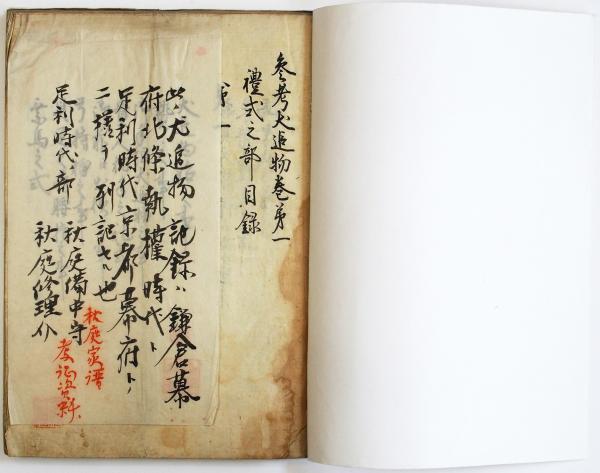 參考犬追物巻第一
禮式之部目録
第一
此ノ犬追物記録ハ鎌倉幕
府北條執權時代ト
足利時代京都幕府トノ
二様ヲ列記セル也
足利時代ノ部
秋庭備中守
秋庭修理介
秋庭家譜
考証資料